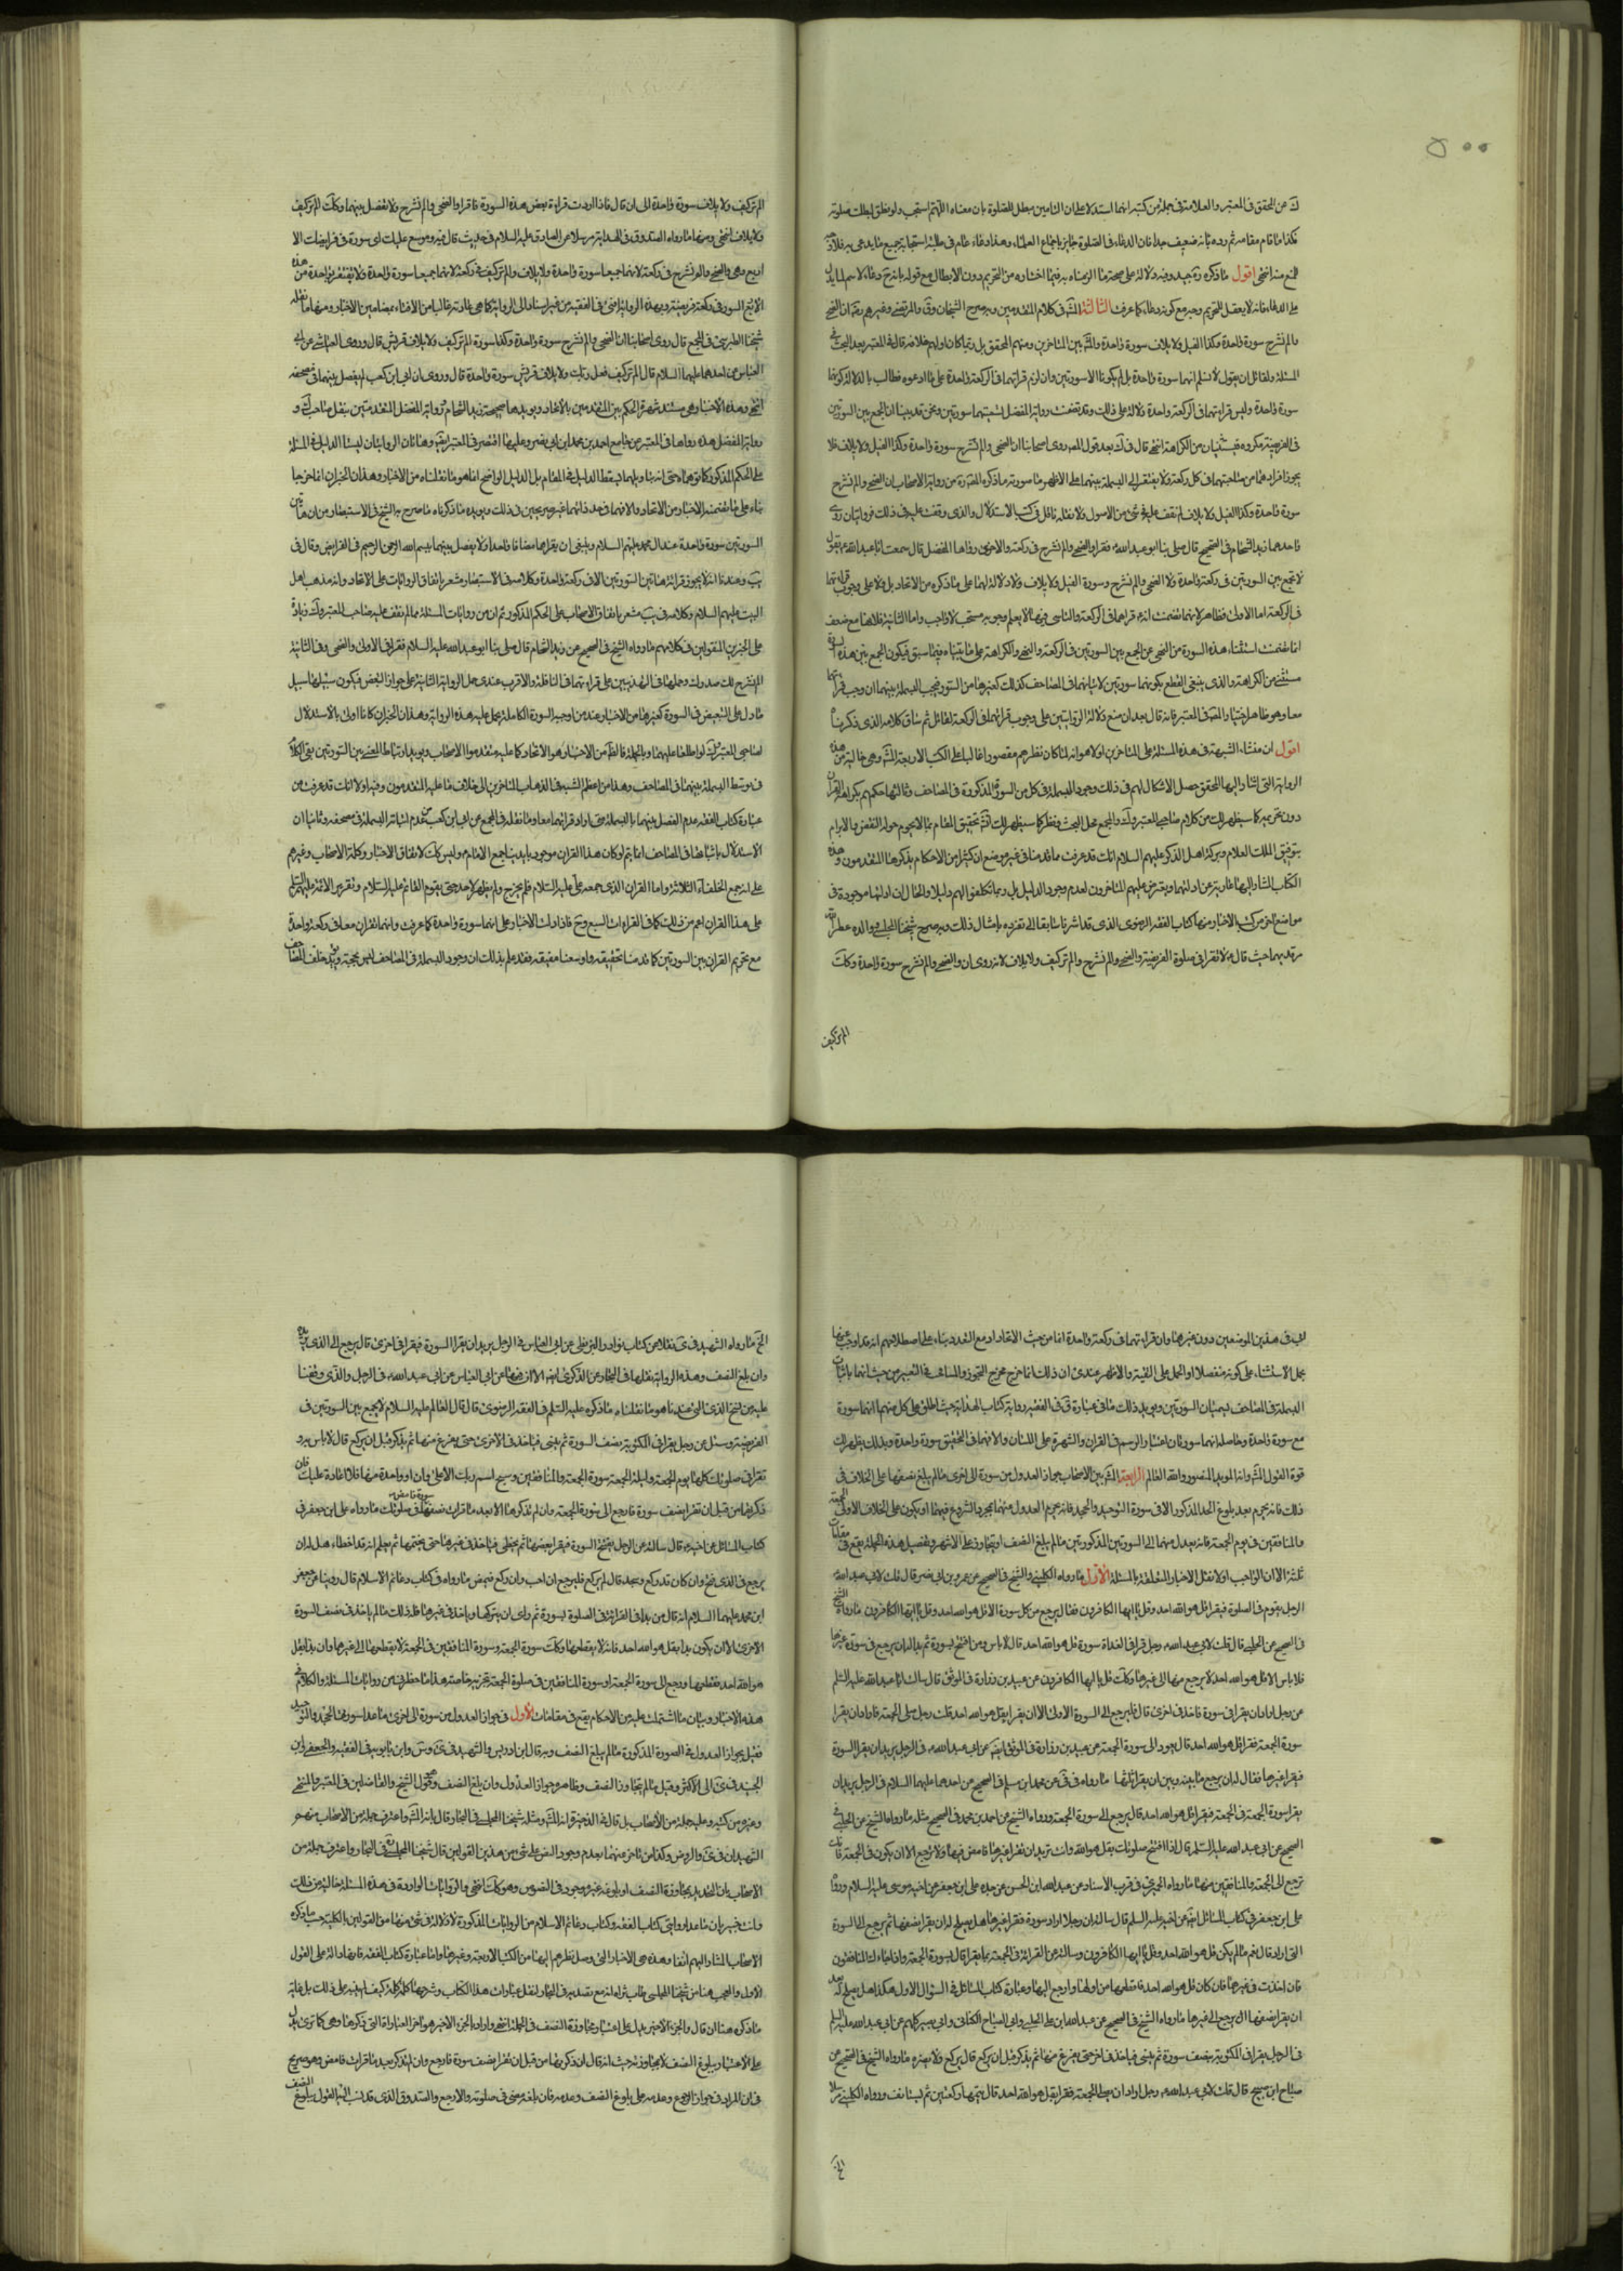 ٥٠٠
ك عن المحقق في المعتبر والعلامة في جملة من كتبه انهما استدلا على ان التامين مبطل للصلوة بان معناه اللهم استجب ولو نطق بطلت صلوته
فكذا ما قام مقامه ثم رده بانه ضعيف جدا فان الدعاء في الصلوة جايز باجماع العلماء وهذا دعاء عام في طلب استجابة جميع ما يدعى به فلا وجه
للمنع منه انتهى اقول ما ذكره ره جيد وفيه دلالة على صحة ما الزمناه به فيما اختاره من التحريم دون الابطال مع قوله بانه دعاء
على الدعاء فانه لا يعقل للتحريم وجه مع كونه دعاء كما عرفت الثالثة المشه في كلام المتقدمين وبه صرح الشيخان وق والمرتضى وغيرهم ان الضحى
والم نشرح سورة واحدة وكذا الفيل ولايلاف سورة واحدة والمشه بين المتاخرين ومنهم المحقق بل ربما كان اولهم خلافه قال في المعتبر بعد البحث في
المسئلة ولقائل ان يقول لا نسلم انهما سورة واحدة بل لم يكونا الا سورتين وان لزم قراءتهما في الركعة الواحدة على ما ادعوه فطالب بالدلالة على كونهما
سورة واحدة وليس قراءتهما في الركعة الواحدة دلالة على ذلك وقد تضمنت رواية المفضل تسميتهما سورتين ونحن قد بينا ان الجمع بين السورتين
في الفريضة مكروه فيستثنيان من الكراهة انتهى قال في ك بعد قول المصه روى اصحابنا ان الضحى والم نشرح سورة واحدة وكذا الفيل ولايلاف فلا
يجوز افراد احدهما من صاحبتها في كل ركعة ولا يفتقر الى البسملة بينهما على الاظهر ما صورته ما ذكره المصه ره من رواية الاصحاب ان الضحى والم نشرح
سورة واحدة وكذا الفيل ولايلاف لم نقف عليه في شئ من الاصول ولا نقله ناقل في كتب الاستدلال والذي وقفت عليه في ذلك روايتان روى
احدهما زيد الشحام في الصحيح قال صلى بنا ابو عبد الله ع فقرا الضحى والم نشرح في ركعة والاخرى رواها المفضل قال سمعت ابا عبد الله ع يقول
لا تجمع بين السورتين في ركعة واحدة الا الضحى والم نشرح وسورة الفيل ولايلاف ولا دلالة لهما على ما ذكره من الاتحاد بل ولا على وجوب قراءتهما
في الركعة اما الاولى فظاهر لانها تضمنت انه ع قراهما في الركعة والتاسي فيما لا يعلم وجوبه مستحب لا واجب واما الثانية فلانها مع ضعف
انما تضمنت استثناء هذه السورة من النهي عن الجمع بين السورتين في الركعة والنهي والكراهة على ما بيناه فيما سبق فيكون الجمع بين هذه
مستثنى من الكراهة والذي ينبغي القطع بكونهما سورتين لاثباتهما في المصاحف كذلك كغيرهما من السور فتجب البسملة بينهما ان وجب قراءتهما
معا وهو ظاهر اختيار المصه في المعتبر فانه قال بعد ان منع دلالة الروايتين على وجوب قراءتهما في الركعة لقائل ثم ساق كلامه الذي ذكرناه
اقول ان منشاء الشبهة في هذه المسئلة على المتاخرين اولا هو انه لما كان نظرهم مقصورا غالبا على الكتب الاربعة المشه وهي خالية من هذه
الرواية التي اشار اليها المحقق حصل الاشكال لهم في ذلك وجود البسملة في كل من السور المذكورة في المصاحف وثالثها حكمهم بكراهة القران
دون تحريمه كما سيظهر لك من كلام صاحبي المعتبر وك والجميع محل البحث ونظر كما سيظهر لك انشه تحقيق المقام بما لا يحوم حوله النقض والابرام
بتوفيق الملك العلام وبركة اهل الذكر عليهم السلام انك قد عرفت مما قدمنا في غير موضع ان كثيرا من الاحكام يذكرها المتقدمون وهذه
الكتاب المشار اليها عارية عن ادلتها ويعترض عليهم المتاخرون لعدم وجود الدليل بل ربما تكلفوا لهم دليلا والحال ان ادلتها موجودة في
مواضع اخر من كتب الاخبار ومنها كتاب الفقه الرضوي الذي قد اشرنا سابقا الى تفرده بامثال ذلك وبه صرح شيخنا المجلسي ووالده عطر الله
مرقديهما حيث قال ع لا تقرا في صلوة الفريضة والضحى والم نشرح والم تر كيف ولايلاف لانه روى ان والضحى والم نشرح سورة واحدة وكك
الم تر كيف
الم تر كيف ولايلاف سورة واحدة الى ان قال فاذا اردت قراءة بعض هذه السورة فاقرا والضحى والم نشرح ولا تفصل بينهما وكك الم تر كيف
ولايلاف انتهى ومنها ما رواه الصدوق في الهداية مرسلا عن الصادق عليه السلام في حديث قال فيه وموسع عليك اي سورة في فرائضك الا
اربع وهي والضحى والم نشرح في ركعة لانهما جميعا سورة واحدة ولايلاف والم تر كيف في ركعة لانهما جميعا سورة واحدة ولا ينفرد بواحدة من هذه
الاربع السور في ركعة فريضة وبهذه الرواية افتى في الفقيه من غير اسناد الى الرواية كما هي عادته غالبا من الافتاء بمضامين الاخبار ومنها ما نقله
شيخنا الطبرسي في المجمع قال روى اصحابنا ان الضحى والم نشرح سورة واحدة وكذا سورة الم تر كيف ولايلاف قريش قال وروى العياشي عن ابي
العباس عن احدهما عليهما السلام قال الم تر كيف فعل ربك ولايلاف قريش سورة واحدة قال وروى ان ابي ابن كعب لم يفصل بينهما في مصحفه
انتهى وهذه الاخبار هي مستند شهرة الحكم بين المتقدمين بالاتحاد ويؤيدها صحيحة زيد الشحام ورواية المفضل المتقدمتين بنقل صاحب ك و
رواية المفضل هذه رواها في المعتبر عن جامع احمد بن محمد ابن ابي نصر وعليهما اقتصر في المعتبر ايضا وهاتان الروايتان ليستا الدليل في المسئلة
على الحكم المذكور كما توهماه حتى انه بتاويلهما يسقط الدليل في المقام بل الدليل الواضح انما هو ما نقلناه من الاخبار وهذان الخبران انما خرجا
بناء على ما تضمنته الاخبار من الاتحاد والا فهما في حد ذاتهما غير صريحين في ذلك ويؤيده ما ذكرناه ما صرح به الشيخ في الاستبصار من ان هاتين
السورتين سورة واحدة عند ال محمد عليهم السلام وينبغي ان يقراهما موضعا واحدا ولا يفصل بينهما ببسم الله الرحمن الرحيم في الفرايض وقال في
يب وعندنا انه لا يجوز قراءة هاتين السورتين الا في ركعة واحدة وكلامه في الاستبصار مشعر باتفاق الروايات على الاتحاد وانه مذهب اهل
البيت عليهم السلام وكلامه في يب مشعر باتفاق الاصحاب على الحكم المذكور ثم ان من روايات المسئلة مما لم يقف عليه صاحب المعتبر وك زيادة
على الخبرين المنقولين في كلامهم ما رواه الشيخ في الصحيح عن زيد الشحام قال صلى بنا ابو عبد الله عليه السلام فقرا في الاولى والضحى وفي الثانية
الم نشرح لك صدرك وحملها في التهذيبين على قراءتهما في النافلة والاقرب عندي حمل الرواية الثانية على جواز التبعيض فيكون سبيلها سبيل
ما دل على التبعيض في السورة كغيرها من الاخبار وعند من اوجب السورة الكاملة يحمل عليه هذه الرواية وهذان الخبران كانا اولى بالاستدلال
لصاحبي المعتبر وك لو اطلعا عليهما وبالجملة فالظه من الاخبار هو الاتحاد كما عليه متقدموا الاصحاب ويؤيد ارتباط المعنى بين السورتين بقي الكلام
في توسط البسملة بينهما في المصاحف وهذا من اعظم الشبه في الذهاب المتاخرين الى خلاف ما عليه المتقدمون وفيه اولا انك قد عرفت من
عبارة كتاب الفقه عدم الفصل بينهما بالبسملة متى اراد قراءتهما معا وما نقله في المجمع عن ابي ابن كعب من عدم اثباته البسملة في مصحفه وثانيا ان
الاستدلال باثباتها في المصاحف انما يتم لو كان هذا القران الموجود بايدينا جمع الامام ع وليس كك لاتفاق الاخبار وكلمة الاصحاب وغيرهم
على انه جمع الخلفاء الثلاثة واما القران الذي جمعه علي عليه السلام فلم يخرج ولم يظهر لاحد حتى يقوم القائم عليه السلام وتقرير الائمة عليهم السلام
على هذا القران اعم من ذلك كما في القراءات السبع وح فاذا دلت الاخبار على انهما سورة واحدة كما عرفت وانهما تقران معا في ركعة واحدة
مع تحريم القران بين السورتين كما قدمنا تحقيقه واوسعنا مضيقه فقد علم بذلك ان وجود البسملة في المصاحف ليس بحجة
ابي في هذين الموضعين دون غيرهما وان قراءتهما في ركعة واحدة انما من حيث الاتحاد او مع التعدد بناء على اصطلاحهم انه قد اوجب
يحمل الاستثناء على كونه منفصلا او الحمل على التقية والاظهر عندي ان ذلك انما خرج مخرج التجوز والمسامحة في التعبير من حيث انهما باثبات
البسملة في المصاحف يسميان السورتين ويؤيد ذلك ما في عبارة ق في الفقيه ورواية كتاب الهداية حيث اطلق على كل منهما انهما سورة
مع سورة واحدة وحاصله انهما سورتان اعتبار الرسم في القران والشهرة على اللسان والا فهما في التحقيق سورة واحدة وبذلك يظهر لك
قوة القول المشه وانه المؤيد المنصور والله العالم الرابعة المشه بين الاصحاب جواز العدول من سورة الى اخرى ما لم يبلغ نصفها على الخلاف في
ذلك فانه يحرم بعد بلوغ الحد المذكور الا في سورة التوحيد والجحد فانه يحرم العدول منهما بمجرد الشروع فيهما او يكون على الخلاف الا في الجمعة
والمنافقين في يوم الجمعة فانه يعدل منهما الى السورتين المذكورتين ما لم يبلغ النصف او يتجاوز على الاشهر وتفصيل هذه الجملة يقع في مقامات
ثلثة الا ان الواجب اولا نقل الاخبار المتعلقة بالمسئلة الاول ما رواه الكليني والشيخ في الصحيح عن عمرو بن ابي نصر قال قلت لابي عبد الله ع
الرجل يقوم في الصلوة فيقرا قل هو الله احد وقل يا ايها الكافرون فقال يرجع من كل سورة الا قل هو الله احد وقل يا ايها الكافرون ما رواه الشيخ
في الصحيح عن الحلبي قال قلت لابي عبد الله ع رجل قرا في الغداة سورة قل هو الله احد قال لا باس ومن افتتح بسورة ثم بدا له ان يرجع في سورة غيرها
فلا باس الا قل هو الله احد لا يرجع منها الى غيرها وكك قل يا ايها الكافرون عن عبيد بن زرارة في الموثق قال سالت ابا عبد الله عليه السلام
عن رجل اراد ان يقرا في سورة فاخذ في اخرى قال فليرجع الى السورة الاولى الا ان يقرا بقل هو الله احد قلت رجل صلى الجمعة فاراد ان يقرا
سورة الجمعة فقرا قل هو الله احد قال يعود الى سورة الجمعة عن عبيد بن زرارة في الموثق ايضا عن ابي عبد الله ع في الرجل يريد ان يقرا السورة
فيقرا غيرها فقال له ان يرجع ما بينه وبين ان يقرا ثلثيها ما رواه في في عن محمد بن مسلم في الصحيح عن احدهما عليهما السلام في الرجل يريد ان
يقرا سورة الجمعة في الجمعة فيقرا قل هو الله احد قال يرجع الى سورة الجمعة ورواه الشيخ عن احمد بن محمد في الصحيح مثله ما رواه الشيخ عن الحلبي في
الصحيح عن ابي عبد الله عليه السلام قال اذا افتتحت صلوتك بقل هو الله وانت تريد ان تقرا غيرها فامض فيها ولا ترجع الا ان يكون في الجمعة فانك
ترجع الى الجمعة والمنافقين منها ما رواه الحميري في قرب الاسناد عن عبد الله ابن الحسن عن جده علي ابن جعفر عن اخيه موسى عليه السلام ورواه
علي ابن جعفر في كتاب المسائل ايضا عن اخيه عليه السلام قال سالته عن رجل اراد سورة فقرا غيرها هل يصلح له ان يقرا نصفها ثم يرجع الى السورة
التي اراد قال نعم ما لم يكن قل هو الله احد وقل يا ايها الكافرون وسالته عن القراءة في الجمعة بما يقرا قال بسورة الجمعة واذا جاءك المنافقون
فان اخذت في غيرها فان كان قل هو الله احد فاقطعها من اولها وارجع اليها وعبارة كتاب المسائل في السؤال الاول هكذا هل يصلح له بعد
ان يقرا نصفها ان يرجع الى غيرها ما رواه الشيخ في الصحيح عن عبيد الله ابن علي الحلبي وابي الصباح الكناني وابي بصير كلهم عن ابي عبد الله عليه السلم
في الرجل يقرا في المكتوبة بنصف سورة ثم ينسى فياخذ في اخرى حتى يفرغ منها ثم يذكر قبل ان يركع قال يركع ولا يضره ما رواه الشيخ في الصحيح عن
صباح ابن صبيح قال قلت لابي عبد الله ع رجل اراد ان يصلي الجمعة فقرا بقل هو الله احد قال يتمها ركعتين ثم يستانف ورواه الكليني مرسلا
الخ
الخ ما رواه الشهيد في ى نقلا من كتاب نوادر البزنطي عن ابي العباس في الرجل يريد ان يقرا السورة فيقرا في اخرى قال يرجع الى الذي يريد
وان بلغ النصف وهذه الرواية نقلها في البحار عن الذكرى ايضا الا ان فيها عن ابي العباس عن ابي عبد الله ع في الرجل والذي وقفنا
عليه من نسخ الذكرى عندنا هو ما نقلناه ما ذكره عليه السلم في الفقه الرضوي قال قال العالم عليه السلام لا يجمع بين السورتين في
الفريضة وسئل عن رجل يقرا في المكتوبة نصف السورة ثم ينسى فياخذ في الاخرى حتى يفرغ منها ثم يذكر قبل ان يركع قال لا باس به و
تقرا في صلوتك كلها يوم الجمعة وليلة الجمعة سورة الجمعة والمنافقين وسبح اسم ربك الاعلى وان نسيتها او واحدة منها فلا اعادة عليك فان
ذكرتها من قبل ان تقرا نصف سورة فارجع الى سورة الجمعة وان لم تذكرها الا بعد ما قرات نصف سورة فامض في صلوتك ما رواه علي ابن جعفر في
كتاب المسائل عن اخيه ع قال سالته عن الرجل يفتتح السورة فيقرا بعضها ثم يخطى فياخذ في غيرها حتى يختمها ثم يعلم انه قد اخطاء هل له ان
يرجع في الذي فتح وان كان قد ركع وسجد قال ان لم يركع فليرجع ان احب وان ركع فليمض ما رواه في كتاب دعائم الاسلام قال روينا عن جعفر
ابن محمد عليهما السلام انه قال من بدا في القراءة في الصلوة بسورة ثم راى ان يتركها وياخذ في غيرها فله ذلك ما لم ياخذ في نصف السورة
الاخرى الا ان يكون بدا بقل هو الله احد فانه لا يقطعها وكك سورة الجمعة وسورة المنافقين في الجمعة لا يقطعها الى غيرهما وان بدا بقل
هو الله احد فقطعها ورجع الى سورة الجمعة او سورة المنافقين في صلوة الجمعة تجزيه خاصة هذا ما حضرني من روايات المسئلة والكلام في
هذه الاخبار وبيان ما اشتملت عليه من الاحكام يقع في مقامات الاول في جواز العدول من سورة الى اخرى ما عدا سورتي الجحد والتوحيد
فقيل بجواز العدول في الصورة المذكورة ما لم يبلغ النصف وبه قال ابن ادريس والشهيد في ى وس وابن بابويه في الفقيه والجعفي وابن
الجنيد في ى الى الاكثر وقيل ما لم يتجاوز النصف وظاهره جواز العدول وان بلغ النصف وهو قول الشيخ والفاضلين في المعتبر والمنتهى
وغيره من كتبه وعليه جملة من الاصحاب بل قال في الذخيرة انه المشه ومثله شيخنا المجلسي في البحار وقال بانه المشه واعترف جملة من الاصحاب منهم
الشهيدان في ى والروض وكذا من تاخر عنهما بعدم وجود النص على شئ من هذين القولين قال شيخنا المجلسي ره في البحار واعترف جملة من
الاصحاب بان التحديد بمجاوزة النصف او بلوغه غير موجود في النصوص وهو كك انتهى والروايات الواردة في هذه المسئلة خالية من ذلك
وانت خبير بان ما عدا روايتي كتاب الفقه وكتاب دعائم الاسلام من الروايات المذكورة لا دلالة في شئ منها على القولين بالكلية حسب ما ذكره
الاصحاب المشار اليهم انفا وهذه هي الاخبار التي وصل نظرهم اليها من الكتب الاربعة وغيرها واما عبارة كتاب الفقه فانها دالة على القول
الاول والعجب هنا من شيخنا المجلسي طاب ثراه انه مع تصديه في البحار لنقل عبارات هذا الكتاب وشرحها كلمة كلمة كيف لم ينبه على ذلك بل غاية
ما ذكره هنا ان قال والجزء الاخير يدل على اعتبار مجاوزة النصف في الجملة انتهى واراد بالجزء الاخير هو اخر العبارة التي ذكرها وهي كما ترى تدل
على الاعتبار ببلوغ النصف لا بمجاوزته حيث انه قال ان ذكرتها من قبل ان تقرا نصف سورة فارجع وان لم تذكر بعد ما قرات فامض وهو صريح
في ان المراد في جواز الرجوع وعدمه على بلوغ النصف وعدمه فان بلغه مضى في صلوته والا رجع والصدوق الذي قد نسب اليه القول ببلوغ النصف